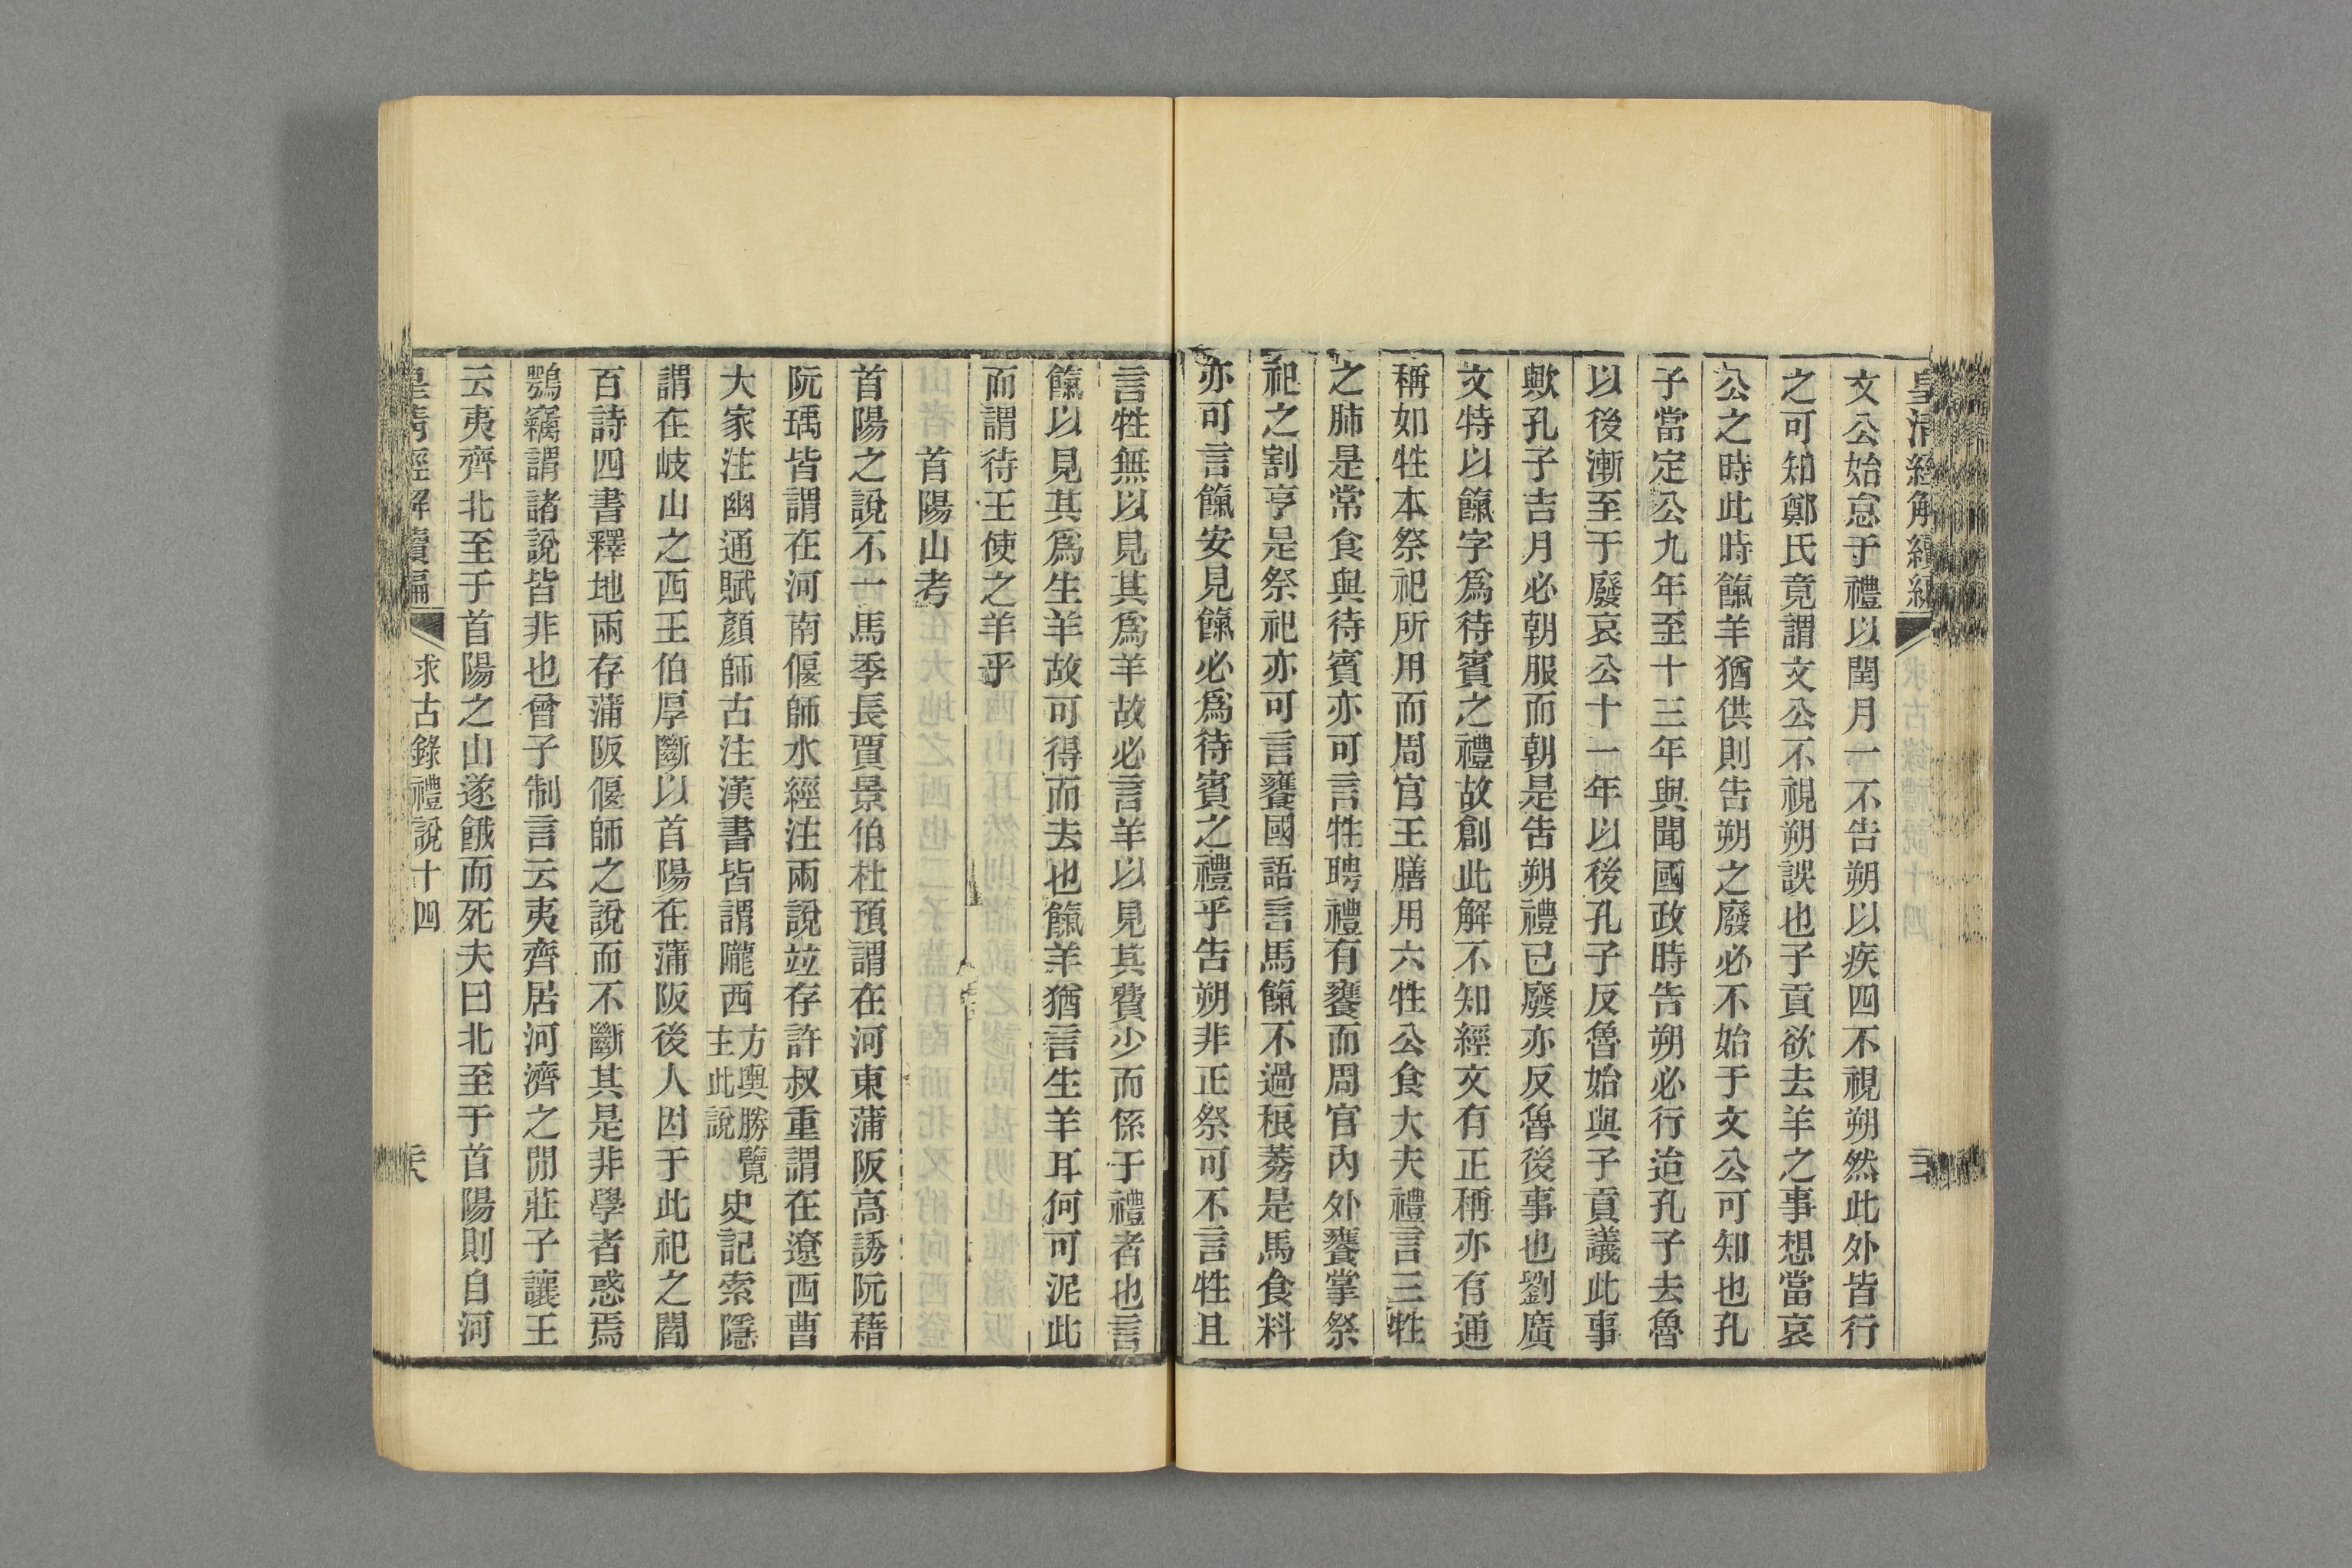 皇清經解續編
文公始怠于禮以閏月一不告朔以疾四不視朔然此外皆行
之可知鄭氏竟謂文公不視朔誤也子貢欲去羊之事想當哀
公之時此時餼羊猶供則告朔之廢必不始于文公可知也孔
子當定公九年至十三年與聞國政時告朔必行迨孔子去魯
以後漸至于廢哀公十一年以後孔子反魯始與子貢議此事
歟孔子吉月必朝服而朝是告朔禮已廢亦反魯後事也劉廣
文特以餼字爲待賓之禮故創此解不知經文有正稱亦有通
稱如牲本祭祀所用而周官王膳用六牲公食大夫禮言三牲
之肺是常食與待賓亦可言牲聘禮有饔而周官內外饔掌祭
祀之割亨是祭祀亦可言饔國語言馬餼不過稂莠是馬食料
亦可言餼安見餼必爲待賓之禮乎告朔非正祭可不言牲且
言牲無以見其爲羊故必言羊以見其費少而係于禮者也言
餼以見其爲生羊故可得而去也餼羊猶言生羊耳何可泥此
而謂待王使之羊乎
首陽山考
首陽之說不一馬季長賈景伯杜預謂在河東蒲阪高誘阮藉
阮瑀皆謂在河南偃師水經注兩說竝存許叔重謂在遼西曹
大家注幽通賦顏師古注漢書皆謂隴西方輿勝覽主此說史記索隱
謂在岐山之西王伯厚斷以首陽在蒲阪後人因于此祀之閻
百詩四書釋地兩存蒲阪偃師之說而不斷其是非學者惑焉
鶚竊謂諸說皆非也曾子制言云夷齊居河濟之閒莊子讓王
云夷齊北至于首陽之山遂餓而死夫曰北至于首陽則自河
皇清經解續編 求古錄禮說十四 天